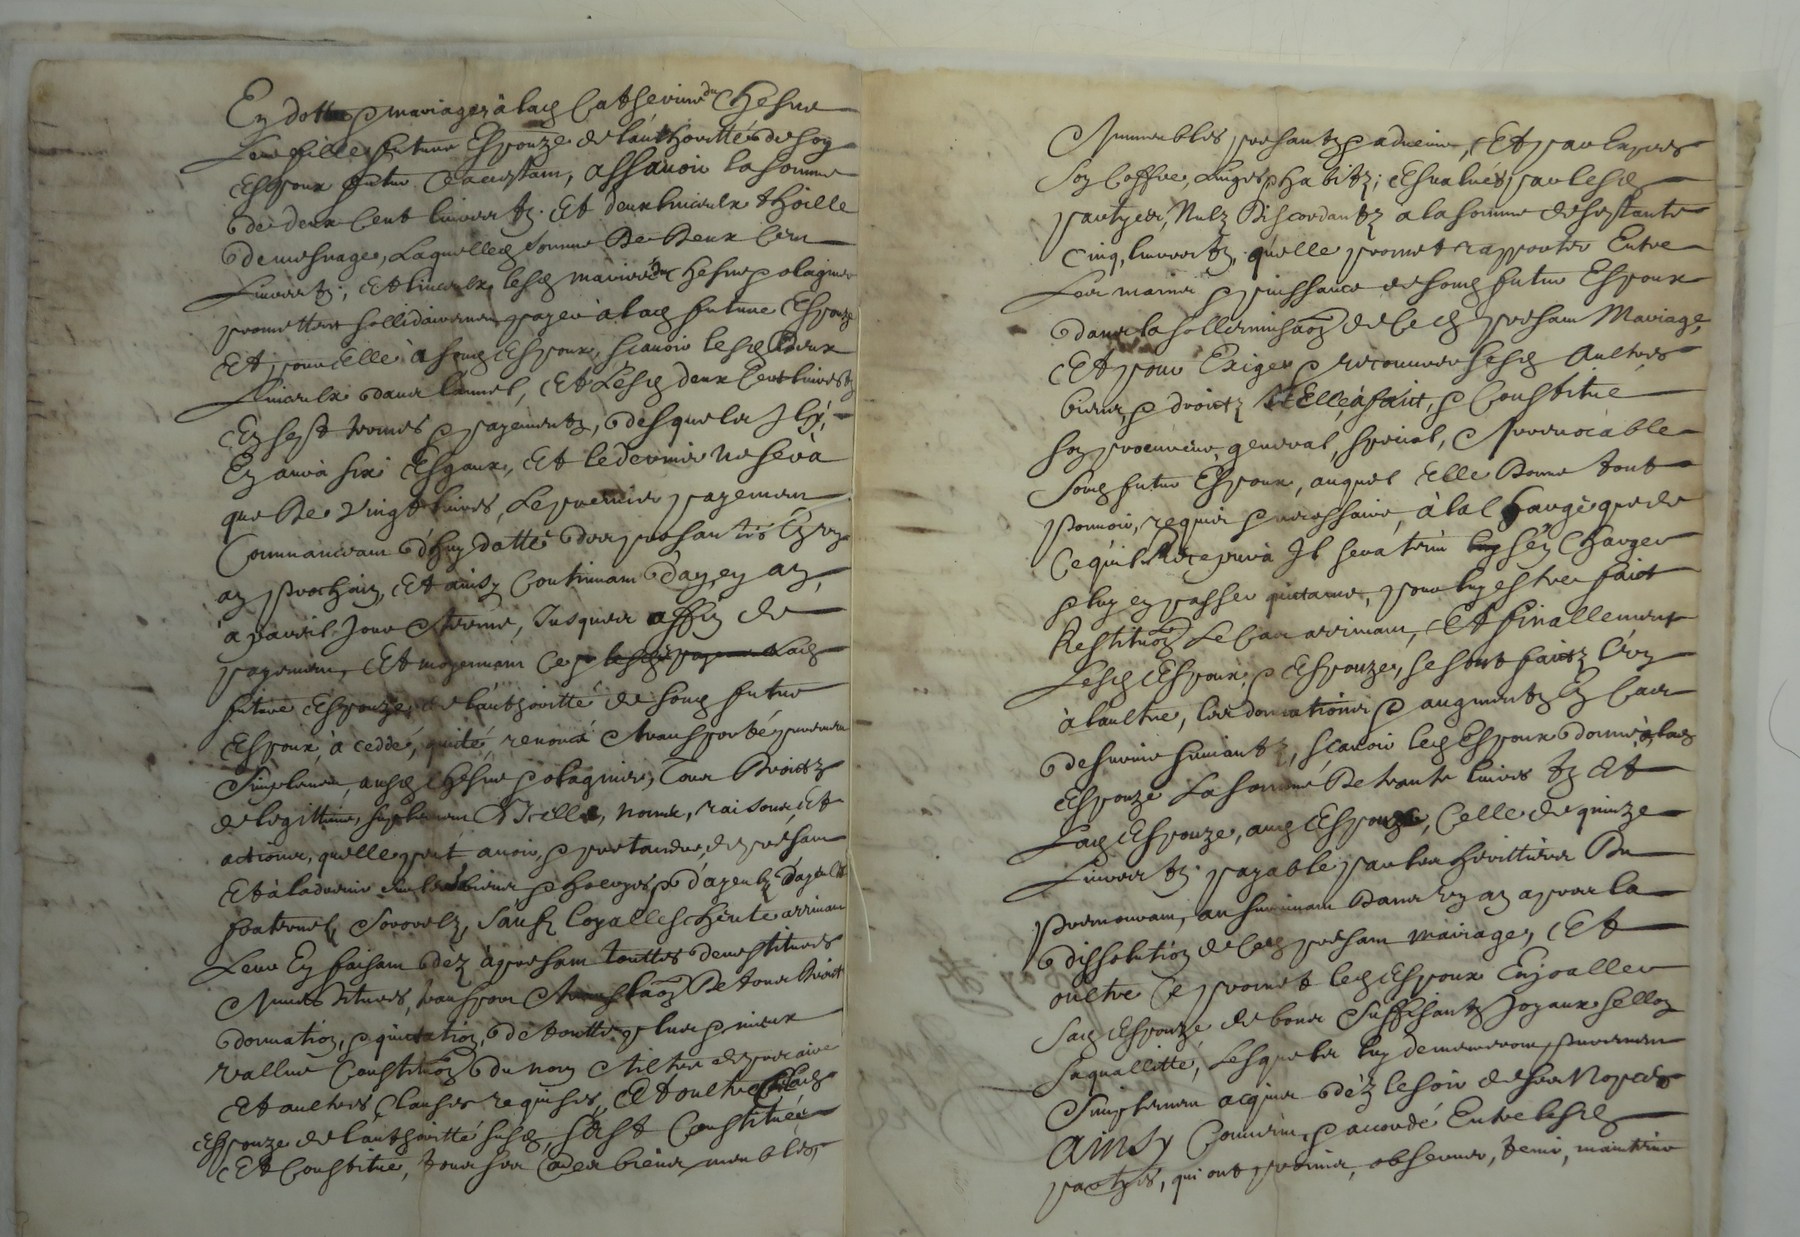 En dotte & mariage à lad Catherine du Chesne
Leur fille future Espouze de l'authoritté de son
Espoux futur Cacceptam, assavoir la somme
de deux Cent livres tz. Et deux linceulx thoille
de mesnage, Laquelled somme De Deux Cens
Livres tz; Et linceulx lesd mariés du Chesne & olagnier
promettent sollidairement payer à lad future Espouze
Et pour Elle à sond Espoux, scavoir lesd Deux
Linceulx dans l'année, Et Lesd deux Cens livres tz
En sept termes & payements, desquels Il y
En aura six Esgaux, Et le dernier ne sera
que De Vingt livres, Le premier payement
Commanceam d'huy datte des presantes En ung
an prochain, Et ainsy Continuam d'an en an,
à pareil Jour & terme, Jusques affin de
payement, Et moyennam Ce lad
future Espouze de l'authoritté de sond futur
Espoux à ceddé, quité, renoncé & transporté purement
Simplement, ausd Chesne & olagnier, Tous Droictz
de legittime, suplement D'icelle, noms, raisons, Et
actions, quelle peut avoir, & pretandre, de presam
Et à l'advenir biens & hoirs
paternel, Sororelz, Saufz loyalle Escheute arrivam
Leur En faisam dèz à presam touttes devestitures
Investitures, transpors & translaōn De tous Droict
donnation, & quictation, de touttes plus & mieux
vallue Constituōn du nom & tiltre de precaire
Et aultres Clauses requises, Et oultre Ce lad
Espouze de l'authoritté susd, s'est Constituée
Et Constitue, tous ses aultres biens meubles
Immeubles presantz & advenir, Et par Expres
Son Coffre, Linges & habitz; Esvalués, par lesd
partyes, Nulz Discordantz a la somme de septante
Cinq, livres tz, quelle promet rapporter Entre
Les mains & puissance de sond futur Espoux
dans la sollemnisaōn de Ced presam Mariage,
Et pour Exiger & recouvrer sesd Aultres
biens, & droictz Elle à faict, & Constitué
son procureur general, special, & Irrevocable
Sond futur Espoux, auquel Elle Donne tout
pouvoir, requis & necessaire, à la Charge que de
Ce qu'il Recepvra Il sera tenu s'en Charger
& luy en passer quictance, pour luy estre faict
Restituōn Le Cas arrivam, Et finallement
Lesd Espoux, & Espouze, se sont faictz l'ung
à l'aultre, les donnations & augmentz En Cas
de survie suivantz, scavoir led Espoux donne à lad
Espouze La somme De trante livres tz Et
Lad Espouze, aud Espoux, Celle de quinze
Livres tz. payable par les herittiers Du
premouram, au survivam Dans ung an apres la
dissolution de Ced presam mariage, Et
oultre Ce promet led Espoux Enjoaller
Sad Espouze de bons Suffisantz Joyaux sellon
Sa quallitté, Lesquels luy demeureront purement
Simplement acquis dèz le soir de ses Nopces
Ainsy Convenu & accordé Entre lesd
partyes, qui ont promis, observer, tenir, maintenir